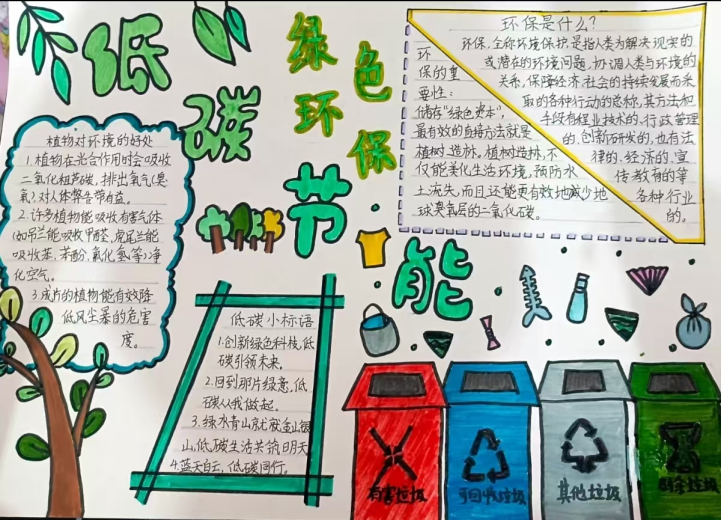 低碳
绿色
环保
节能
植物对环境的好处
1.植物在光合作用时会吸收
二氧化碳,排出氧气(臭
氧)对人体
2.许多植物能吸收有害气体
(如吊兰能吸收甲醛,虎尾兰能
吸收苯、苯酚、氟化氢等)净
化空气。
3.成片的植物能有效降
低风尘暴的危害
度。
低碳小标语
1.创新绿色科技,低
碳引领未来。
2.回到那片绿意,低
碳从我做起。
3.绿水青山就是金山银
山,低碳生活共筑明天
4.蓝天白云,低碳同行。
环保是什么?
环保,全称环境保护,是指人类为解决现实的
或潜在的环境问题,协调人类与环境的
关系,保障经济社会的持续发展而采
取的各种行动的总称,其方法和
手段有程业技术的、行政管理
的,创新研发的,也有法
律的、经济的、宣
传教育的等
各种行业
的。
环
保的重
要性:
储存“绿色资本”,
最有效的自持方法就是
植树造林,植树造林,不
仅能美化生活环境,预防水
土流失,而且还能更有效地减少地
球臭氧层的二氧化碳。
有害垃圾
可回收垃圾
其他垃圾
厨余垃圾